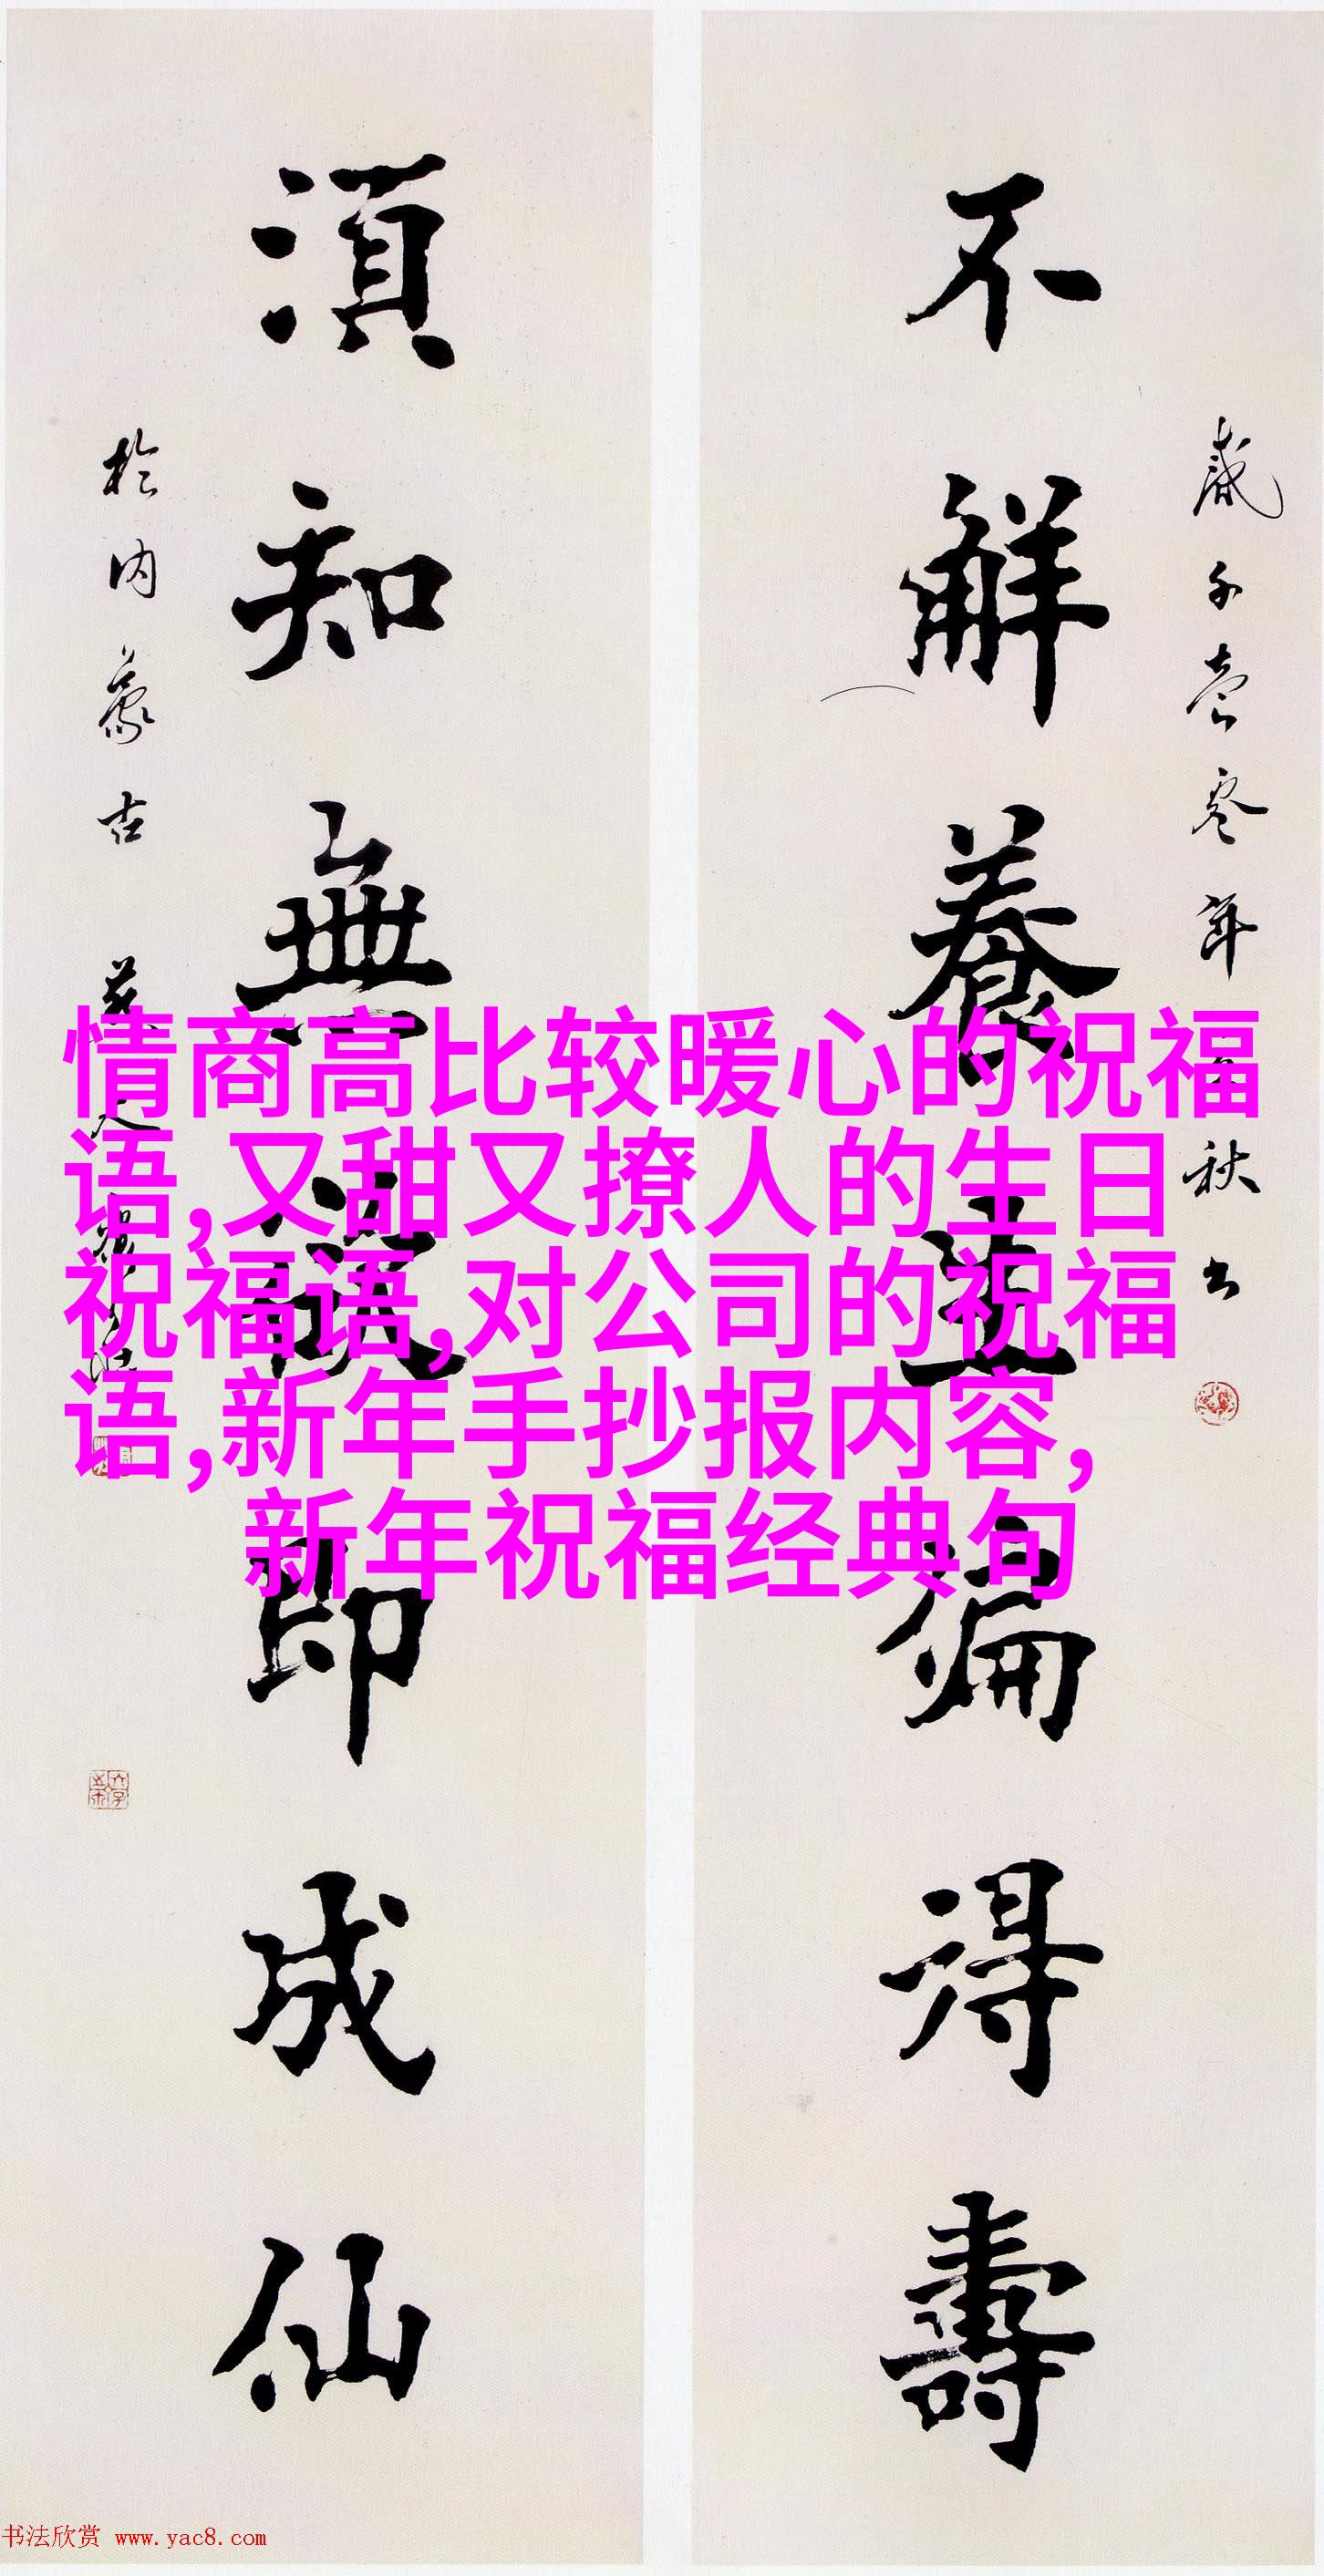 不解養生偏得壽
須知無欲即成仙
於内蒙古
情商高比较暖心的祝福
语,又甜又撩人的生日
祝福语,对公司的祝福
语,新年手抄报内容,
新年祝福经典句
书法欣赏 www.yac8.com